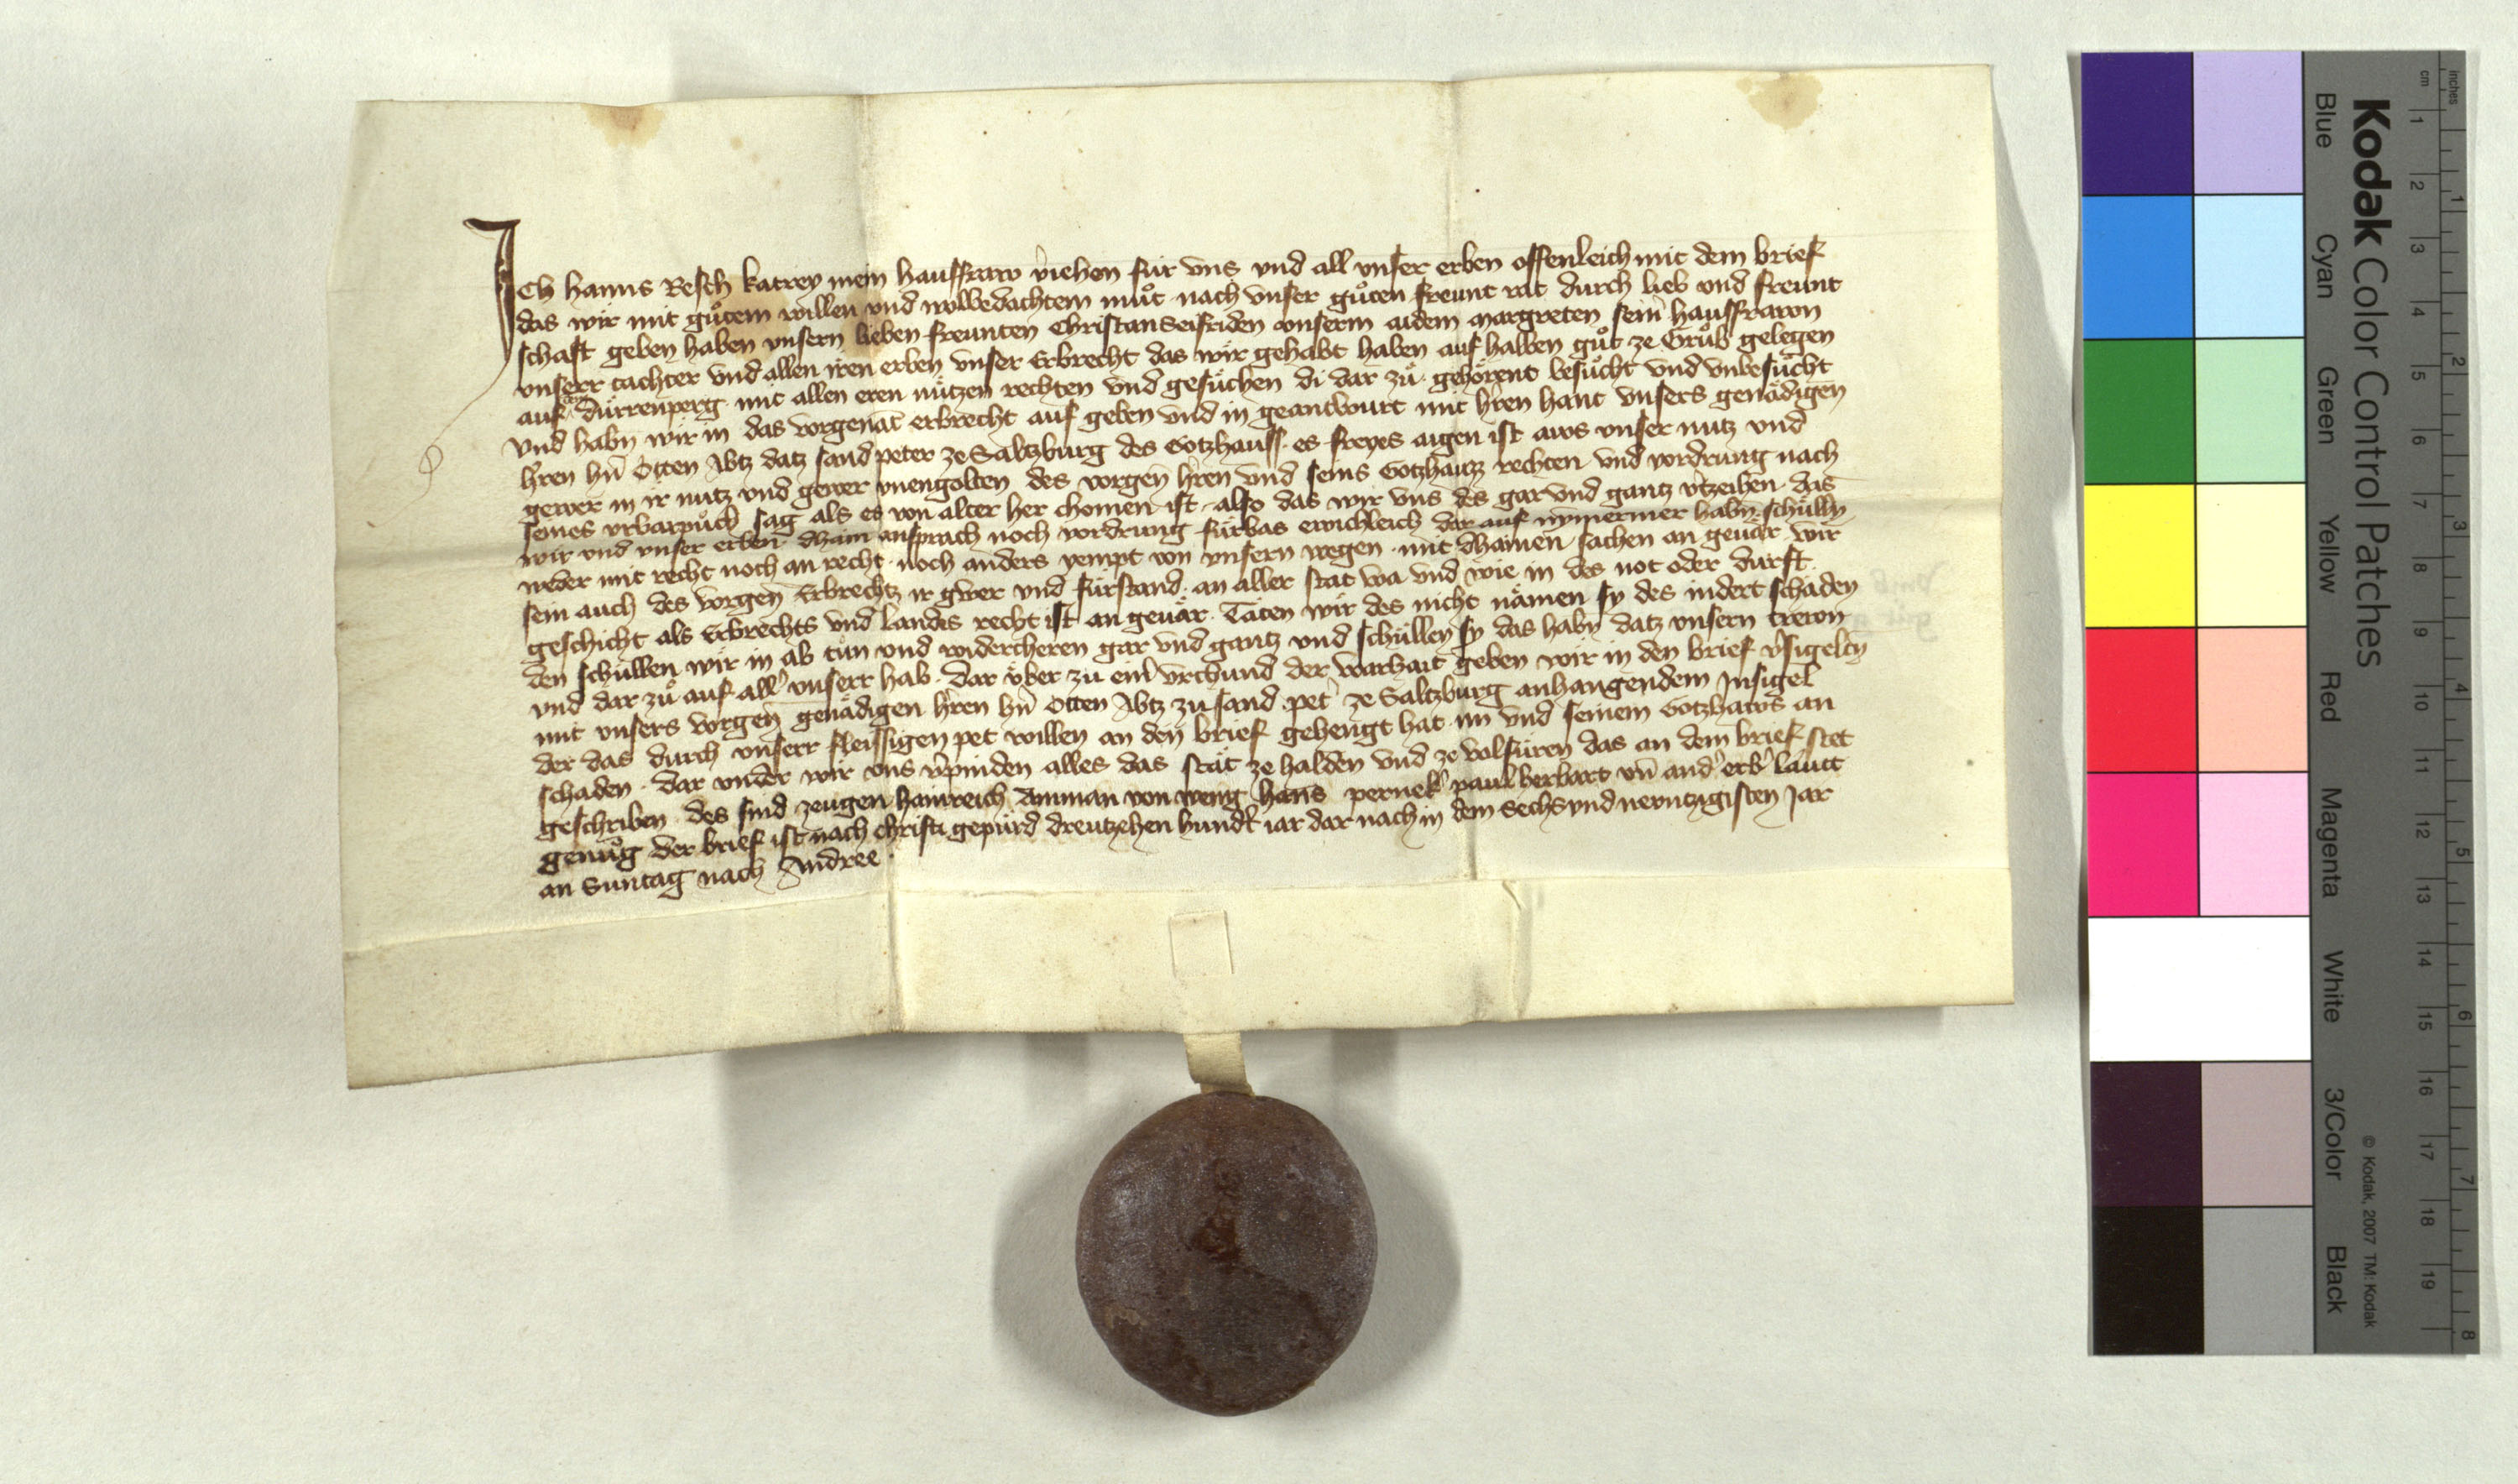 Ich Hanns Resch katrey mein hausfraw v̓iehen für vns vnd all vnser erben offenleich mit dem brief
das wir mit gůtem willen vnd wolbedachtem můt nach vnser gůten freunt rat durch lieb vnd freunt
schaft geben haben vnsern lieben freunten Christan Seifriden vnserm aidem Margreten sein̓ hausfrawn
vnserr tachter vnd allen iren erben vnser Erbrecht das wir gehabt haben auf halben gůt ze Grůb gelegen
auf dem dürrenperg mit allen eren nützen rechten vnd gesüchen di dar zů gehörent besůcht vnd vnbesůcht
vnd habn̄ wir in das vorgenāt erbrecht auf geben vnd in geantbourt mit h̓ren hant vnsers genädigen
h̓ren hn̄ Otten Abtz datz sand peter ze Saltzburg des Gotzhauss es freyes aigen ist aws vnser nutz vnd
gewer in ir nutz vnd gewer vnengolten des vorgen̄ h̓ren vnd seins Gotzhautz rechten vnd vordrung nach
seines vrbarpůch sag als es von alter her chomen ist also das wir vns des gar vnd gantz v̓tzeihen das
wir vnd vnser erben dhain ansprach noch vordrung fürbas ewichleich dar auf nȳmermer habn̄ schülln̄
weder mit recht noch an recht noch anders yempt von vnsern wegen mit dhainen sachen an geuär wir
sein auch des vorgen̄ Erbrechtz ir gwer vnd fürstand an aller stat wa vnd wie in des not oder durft
geschicht als Erbrechts vnd landes recht ist an geuär Täten wir des nicht nämen sy des indert schaden
den schüllen wir in ab tün vnd widercheren gar vnd gantz vnd schüllen sy das habn̄ datz vnsern trewn
vnd dar zů auf all̓ vnserr hab dar vber zu ein̓ vrchund der warhait geben wir in den brief v̓sigeltn̄
mit vnsers vorgen̄ genädigen h̓ren hn̄ Otten Abtz zu sand pet̓ ze Saltzburg anhangendem Insigel
der das durch vnserr fleissigen pet willen an den brief gehengt hat im vnd seinem Gotzhaws an
schaden dar vnder wir vns v̓pinden alles das stät ze halden vnd ze volfüren das an dem brief stet
geschriben des sind zeugen Hainreich Amman von weng Hans pernek̓ paul berbart vn̄ and̓ erb̓ läutt
genůg der brief ist nach christi gepürd dreutzehen hundt̓ iar dar nach in dem Sechs vnd newntzigisten Jar
an Suntag nach Andree
Kodak Color Control Patches
Blue Cyan Green Yellow Red Magenta White 3/Color Black
© Kodak, 2007 TM: Kodak
inches 1 2 3 4 5 6 7 8
cm 1 2 3 4 5 6 7 8 9 10 11 12 13 14 15 16 17 18 19